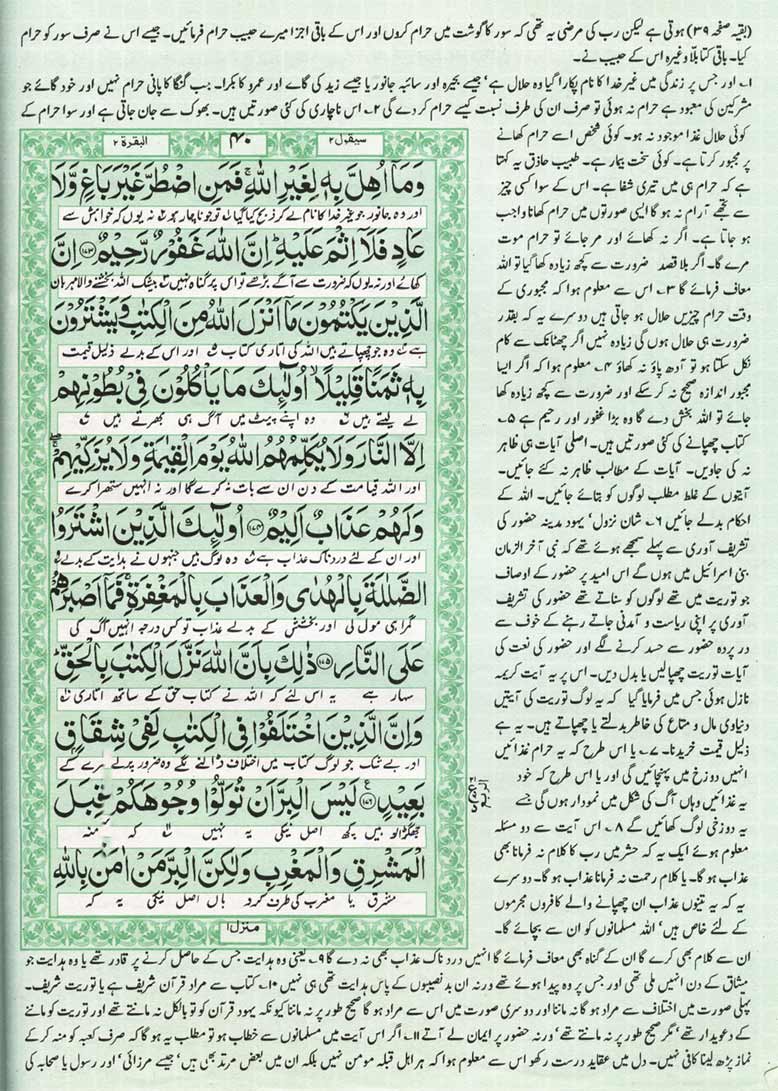 (بقیہ صفحہ ۳۹) ہوتی ہے لیکن رب کی مرضی یہ تھی کہ سور کا گوشت میں حرام کروں اور اس کے باقی اجزا میرے حبیب حرام فرمائیں۔ جیسے اس نے صرف سور کو حرام
کیا۔ باقی کتا بلا وغیرہ اس کے حبیب نے۔
۱۔ اور جس پر زندگی میں غیر خدا کا نام پکارا گیا وہ حلال ہے' جیسے بحیرہ اور سائبہ جانور یا جیسے زید کی گائے اور عمرو کا بکرا۔ جب گنگا کا پانی حرام نہیں اور خود گائے جو
مشرکین کی معبود ہے حرام نہ ہوئی تو صرف ان کی طرف نسبت کیسے حرام کر دے گی ۲۔ اس ناچاری کی کئی صورتیں ہیں۔ بھوک سے جان جاتی ہے اور سوا حرام کے
کوئی حلال غذا موجود نہ ہو۔ کوئی شخص اسے حرام کھانے
پر مجبور کرتا ہے۔ کوئی سخت بیمار ہے۔ طبیب حاذق یہ کہتا
ہے کہ حرام ہی میں تیری شفا ہے۔ اس کے سوا کسی چیز
سے تجھے آرام نہ ہو گا ایسی صورتوں میں حرام کھانا واجب
ہو جاتا ہے۔ اگر نہ کھائے اور مر جائے تو حرام موت
مرے گا۔ اگر بلا قصد ضرورت سے کچھ زیادہ کھا گیا تو اللہ
معاف فرمائے گا ۳۔ اس سے معلوم ہوا کہ مجبوری کے
وقت حرام چیزیں حلال ہو جاتی ہیں دوسرے یہ کہ بقدر
ضرورت ہی حلال ہوں گی زیادہ نہیں اگر چھٹانک سے کام
نکل سکتا ہو تو آدھ پاؤ نہ کھاؤ ۴۔ معلوم ہوا کہ اگر ایسا
مجبور اندازہ صحیح نہ کر سکے اور ضرورت سے کچھ زیادہ کھا
جائے تو اللہ بخش دے گا وہ بڑا غفور اور رحیم ہے ۵۔
کتاب چھپانے کی کئی صورتیں ہیں۔ اصلی آیات ہی ظاہر
نہ کی جاویں۔ آیات کے مطالب ظاہر نہ کئے جائیں۔
آیتوں کے غلط مطلب لوگوں کو بتائے جائیں۔ اللہ کے
احکام بدلے جائیں ۶۔ شان نزول' یہود مدینہ حضور کی
تشریف آوری سے پہلے سمجھے ہوئے تھے کہ نبی آخر الزمان
بنی اسرائیل میں ہوں گے اس امید پر حضور کے اوصاف
جو توریت میں تھے لوگوں کو سناتے تھے حضور کی تشریف
آوری پر اپنی ریاست و آمدنی جاتے رہنے کے خوف سے
در پردہ حضور سے حسد کرنے لگے اور حضور کی نعت کی
آیات توریت چھپالیں یا بدل دیں۔ اس پر یہ آیت کریمہ
نازل ہوئی جس میں فرمایا گیا کہ یہ لوگ توریت کی آیتیں
دنیاوی مال و متاع کی خاطر بدلتے یا چھپاتے ہیں۔ یہ ہے
ذلیل قیمت خریدنا۔ ۷۔ یا اس طرح کہ یہ حرام غذائیں
انہیں دوزخ میں پہنچائیں گی اور یا اس طرح کہ خود
یہ غذائیں وہاں آگ کی شکل میں نمودار ہوں گی جسے
یہ دوزخی لوگ کھائیں گے ۸۔ اس آیت سے دو مسئلہ
معلوم ہوئے ایک یہ کہ حشر میں رب کا کلام نہ فرمانا بھی
عذاب ہو گا۔ یا کلام رحمت نہ فرمانا عذاب ہو گا۔ دوسرے
یہ کہ یہ تینوں عذاب ان چھپانے والے کافروں مجرموں
کے لئے خاص ہیں' اللہ مسلمانوں کو ان سے بچائے گا۔
سیقول ۲
۴۰
البقرة ۲
وَمَآ اُهِلَّ بِهٖ لِغَيْرِ اللّٰهِ ۚ فَمَنِ اضْطُرَّ غَيْرَ بَاغٍ وَّلَا
اور وہ جانور جو غیر خدا کا نام لے کر ذبح کیا گیا تو جو ناچار ہو نہ یوں کہ خواہش سے
عَادٍ فَلَآ اِثْمَ عَلَيْهِ ؕ اِنَّ اللّٰهَ غَفُوْرٌ رَّحِيْمٌ ۝۱۷۳ اِنَّ
کھائے اور نہ یوں کہ ضرورت سے آگے بڑھے تو اس پر گناہ نہیں بیشک اللہ بخشنے والا مہربان
الَّذِيْنَ يَكْتُمُوْنَ مَآ اَنْزَلَ اللّٰهُ مِنَ الْكِتٰبِ وَيَشْتَرُوْنَ
ہے وہ جو چھپاتے ہیں اللہ کی اتاری کتاب اور اس کے بدلے ذلیل قیمت
بِهٖ ثَمَنًا قَلِيْلًا ۙ اُولٰٓئِكَ مَا يَاْكُلُوْنَ فِيْ بُطُوْنِهِمْ
لے لیتے ہیں وہ اپنے پیٹ میں آگ ہی بھرتے ہیں
اِلَّا النَّارَ وَلَا يُكَلِّمُهُمُ اللّٰهُ يَوْمَ الْقِيٰمَةِ وَلَا يُزَكِّيْهِمْ ۖ
اور اللہ قیامت کے دن ان سے بات نہ کرے گا اور نہ انہیں ستھرا کرے
وَلَهُمْ عَذَابٌ اَلِيْمٌ ۝۱۷۴ اُولٰٓئِكَ الَّذِيْنَ اشْتَرَوُا
اور ان کے لئے دردناک عذاب ہے وہ لوگ ہیں جنہوں نے ہدایت کے بدلے
الضَّلٰلَةَ بِالْهُدٰى وَالْعَذَابَ بِالْمَغْفِرَةِ ۚ فَمَآ اَصْبَرَهُمْ
گمراہی مول لی اور بخشش کے بدلے عذاب تو کس درجہ انہیں آگ کی
عَلَى النَّارِ ۝۱۷۵ ذٰلِكَ بِاَنَّ اللّٰهَ نَزَّلَ الْكِتٰبَ بِالْحَقِّ ؕ
سہار ہے یہ اس لئے کہ اللہ نے کتاب حق کے ساتھ اتاری
وَاِنَّ الَّذِيْنَ اخْتَلَفُوْا فِي الْكِتٰبِ لَفِيْ شِقَاقٍۢ
اور بے شک جو لوگ کتاب میں اختلاف ڈالنے لگے وہ ضرور پرلے سرے کے
بَعِيْدٍ ۝۱۷۶ لَيْسَ الْبِرَّ اَنْ تُوَلُّوْا وُجُوْهَكُمْ قِبَلَ
جھگڑالو ہیں کچھ اصل نیکی یہ نہیں کہ منہ
الْمَشْرِقِ وَالْمَغْرِبِ وَلٰكِنَّ الْبِرَّ مَنْ اٰمَنَ بِاللّٰهِ
مشرق یا مغرب کی طرف کرو ہاں اصل نیکی یہ کہ
منزل ۱
ان سے کلام بھی کرے گا ان کے گناہ بھی معاف فرمائے گا انہیں دردناک عذاب بھی نہ دے گا ۹۔ یعنی وہ ہدایت جس کے حاصل کرنے پر قادر تھے یا وہ ہدایت جو
میثاق کے دن انہیں ملی تھی اور جس پر وہ پیدا ہوئے تھے ورنہ ان بد نصیبوں کے پاس ہدایت تھی ہی نہیں ۱۰۔ کتاب سے مراد قرآن شریف ہے یا توریت شریف۔
پہلی صورت میں اختلاف سے مراد ہو گا نہ ماننا اور دوسری صورت میں اس سے مراد ہو گا صحیح طور پر نہ ماننا کیونکہ یہود قرآن کو تو بالکل نہ مانتے تھے اور توریت کو ماننے
کے دعویدار تھے' مگر صحیح طور پر نہ مانتے تھے' ورنہ حضور پر ایمان لے آتے ۱۱۔ اگر اس آیت میں مسلمانوں سے خطاب ہو تو مطلب یہ ہو گا کہ صرف کعبہ کو منہ کر کے
نماز پڑھ لینا کافی نہیں۔ دل میں عقاید درست رکھو اس سے معلوم ہوا کہ ہر اہل قبلہ مومن نہیں بلکہ ان میں بعض مرتد بھی ہیں' جیسے مرزائی' اور رسول یا صحابہ کی